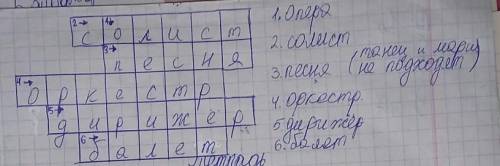 2→ 1↓
с о л и с т
3→ п е с н я
4→ о р к е с т р
5→ д и р и ж е р
6→ б а л е т
1. Опера
2. солист
3. песня (танец и марш
не подходят)
4. оркестр
5. дирижёр
6. балет